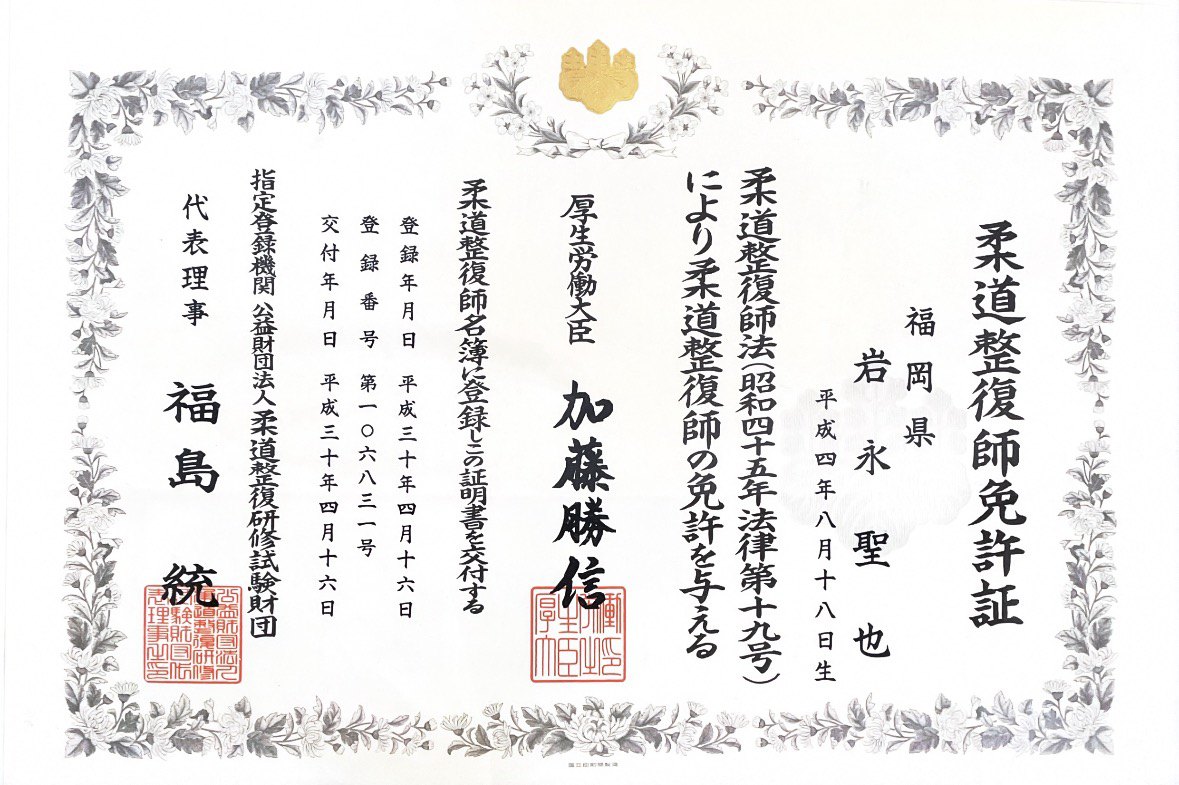 柔道整復師免許証
福岡県
岩永聖也
平成四年八月十八日生
柔道整復師法(昭和四十五年法律第十九号)
により柔道整復師の免許を与える
厚生労働大臣 加藤勝信
柔道整復師名簿に登録しこの証明書を交付する
登録年月日 平成三十年四月十六日
登録番号 第一〇六八三一号
交付年月日 平成三十年四月十六日
指定登録機関 公益財団法人 柔道整復研修試験財団
代表理事 福島 統
国立印刷局製造